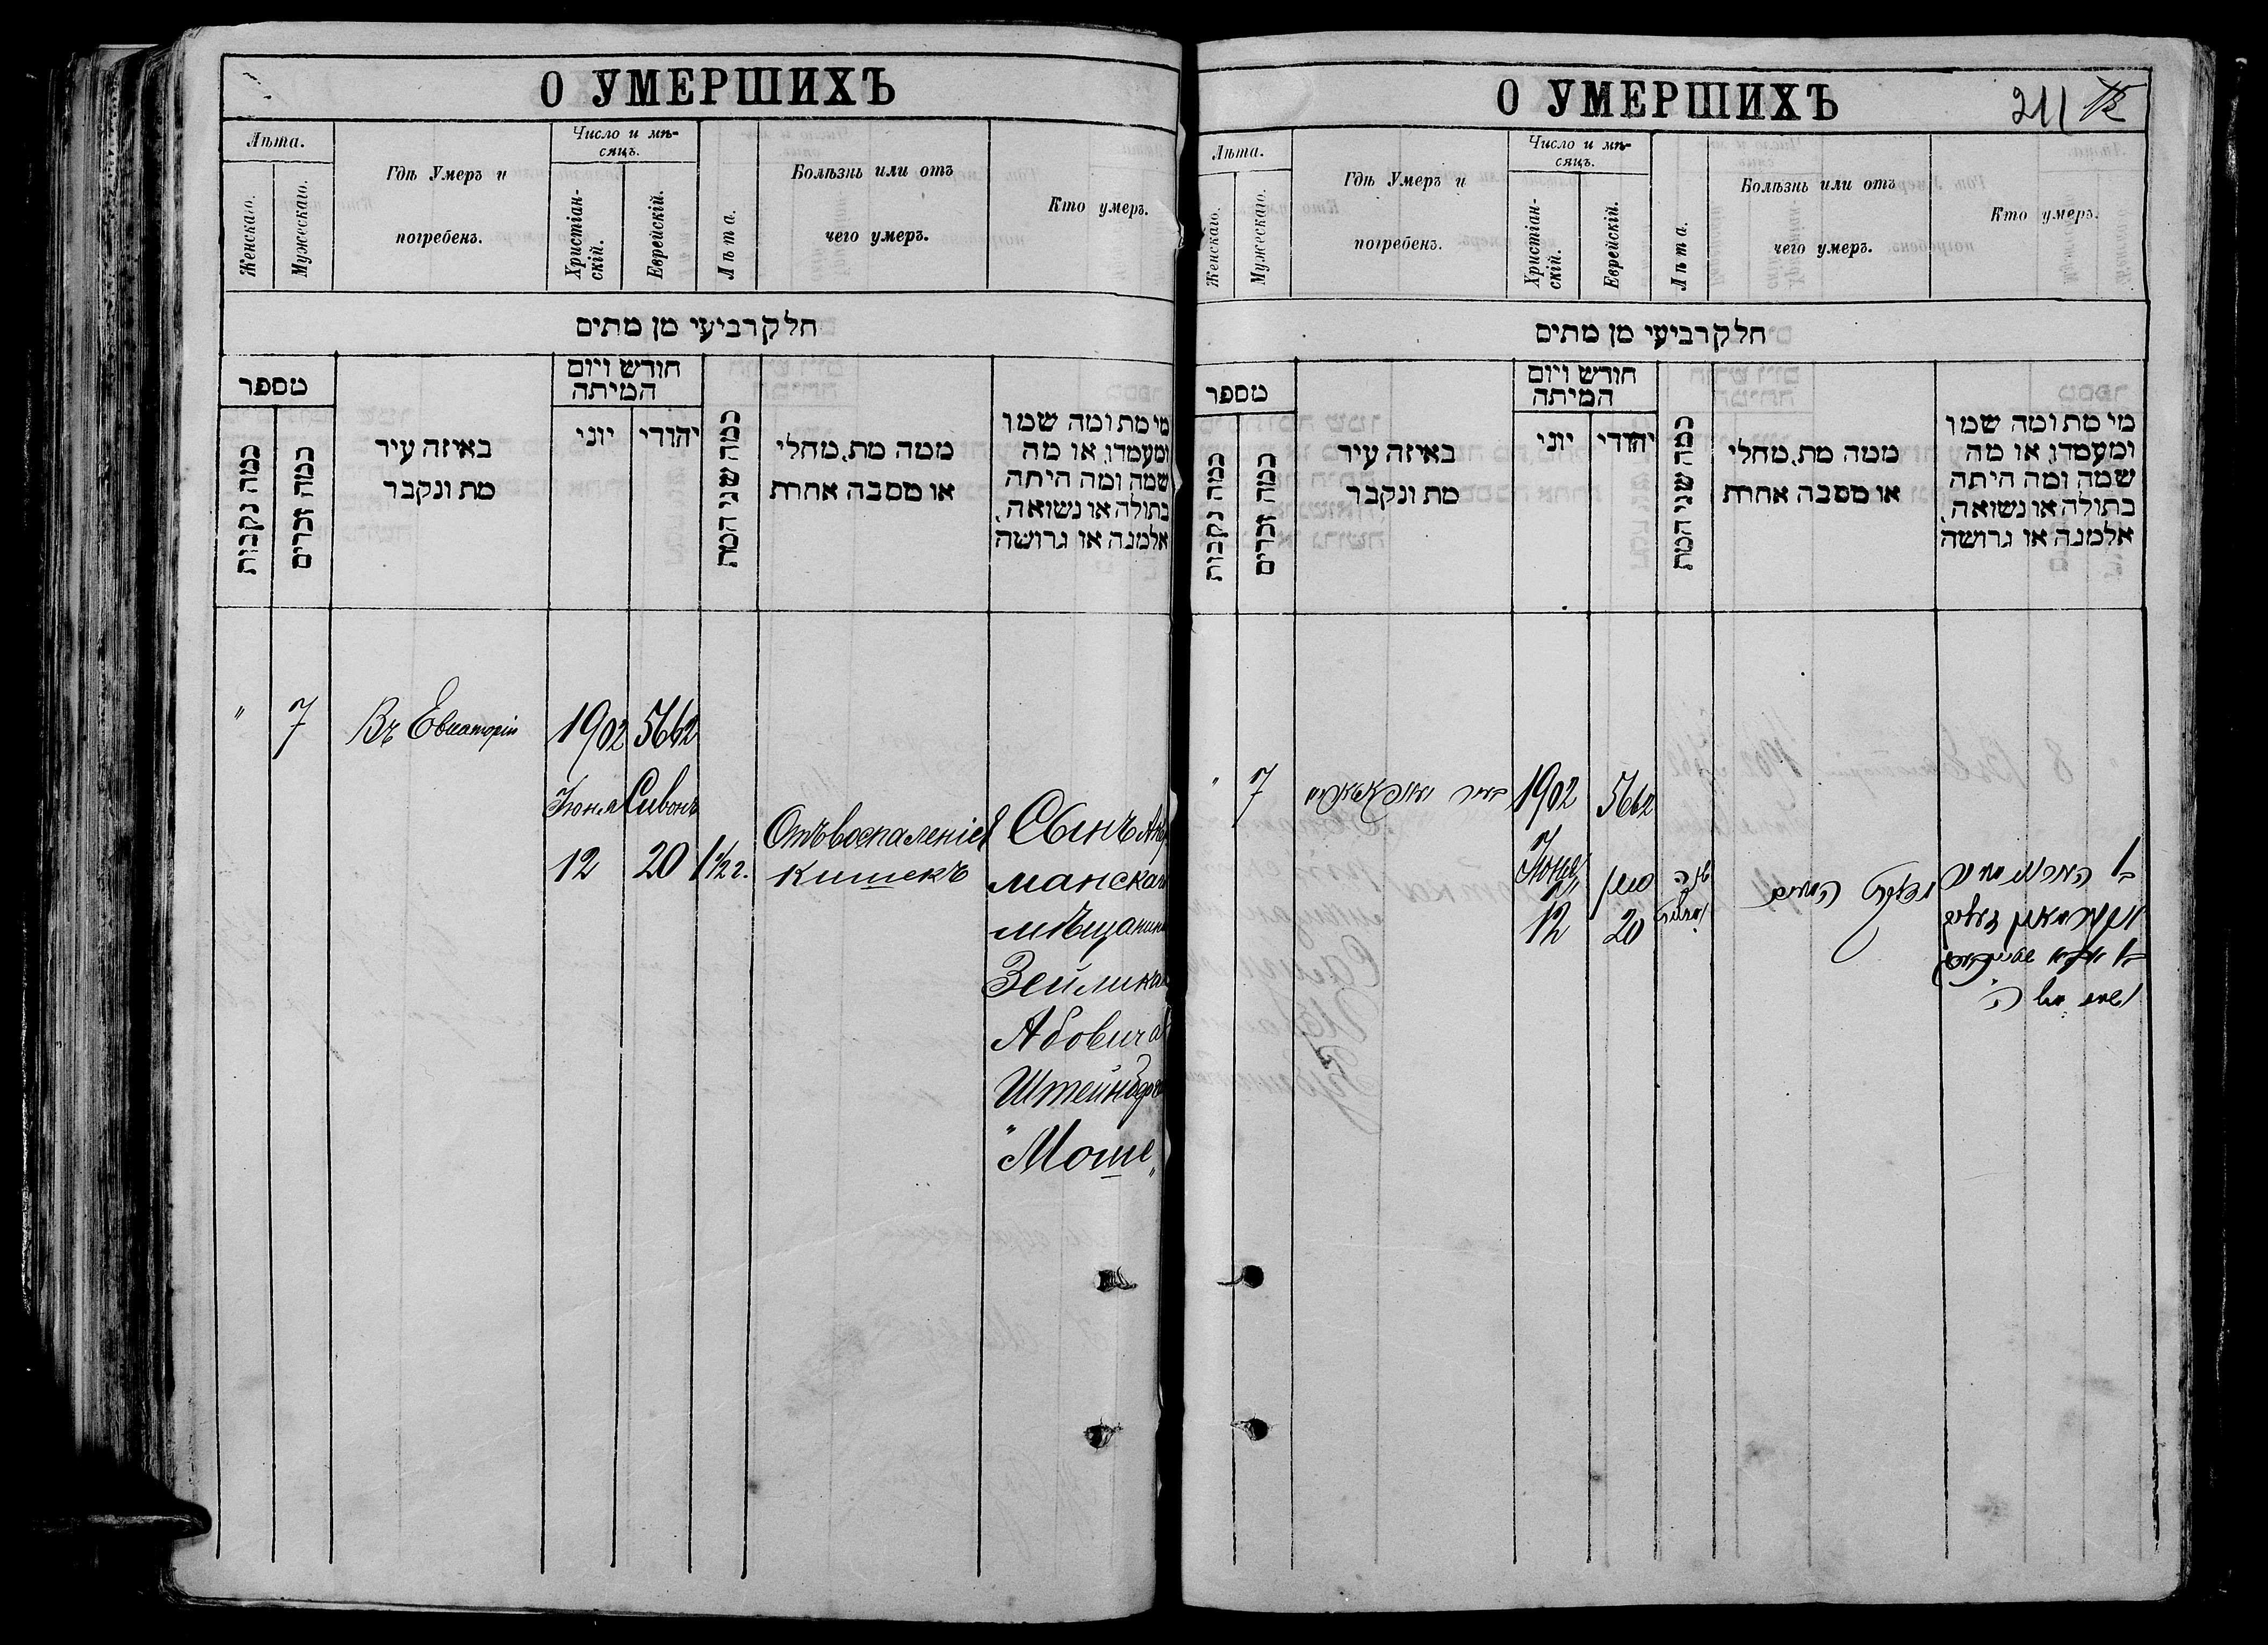 О УМЕРШИХЪ
Лѣта.
Женскаго.
Мужескаго.
Гдѣ Умеръ и
погребенъ.
Число и мѣ-
сяцъ.
Христіан-
скій.
Еврейскій.
Лѣта.
Болѣзнь или отъ
чего умеръ.
Кто умеръ.
חלק רביעי מן מתים
מספר
כמה נקבות
כמה זכרים
באיזה עיר
מת ונקבר
חודש ויום
המיתה
יוני
יהודי
כמה שני המת
ממה מת, מחלי
או מסבה אחרת
מי מת ומה שמו
ומעמדו, או מה
שמה ומה היתה
בתולה או נשואה,
אלמנה או גרושה
"
7
Въ Евпаторіи
1902
Іюня
12
5662
Сивонъ
20
1½ г.
Отъ воспаленія
кишекъ
Сынъ Акер
манскаго
мѣщанина
Зейлика
Абовича
Штейнберга
"Моше"
О УМЕРШИХЪ
211
Лѣта.
Женскаго.
Мужескаго.
Гдѣ Умеръ и
погребенъ.
Число и мѣ-
сяцъ.
Христіан-
скій.
Еврейскій.
Лѣта.
Болѣзнь или отъ
чего умеръ.
Кто умеръ.
חלק רביעי מן מתים
מספר
כמה נקבות
כמה זכרים
באיזה עיר
מת ונקבר
חודש ויום
המיתה
יוני
יהודי
כמה שני המת
ממה מת, מחלי
או מסבה אחרת
מי מת ומה שמו
ומעמדו, או מה
שמה ומה היתה
בתולה או נשואה,
אלמנה או גרושה
"
7
1902
12
5662
סיון
20